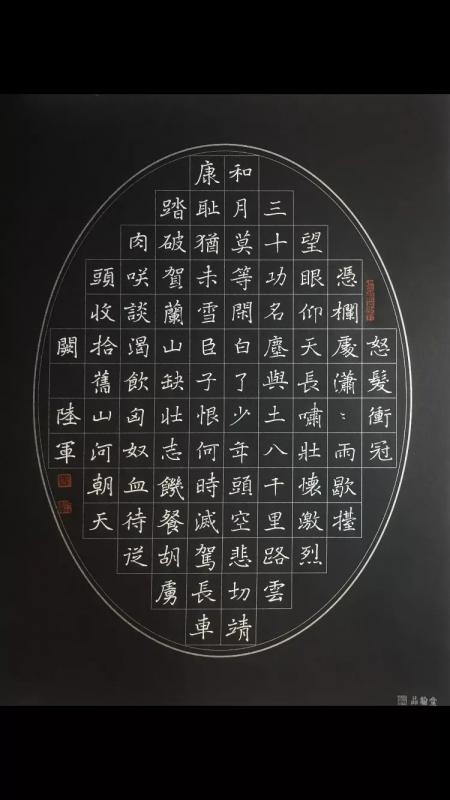 怒髮衝冠
憑欄處瀟〻雨歇擡
望眼仰天長嘯壯懷激烈
三十功名塵與土八千里路雲
和月莫等閑白了少年頭空悲切靖
康恥猶未雪臣子恨何時滅駕長車
踏破賀蘭山缺壯志饑餐胡虜
肉咲談渴飲匈奴血待従
頭收拾舊山河朝天
闕 陸軍
品翰堂